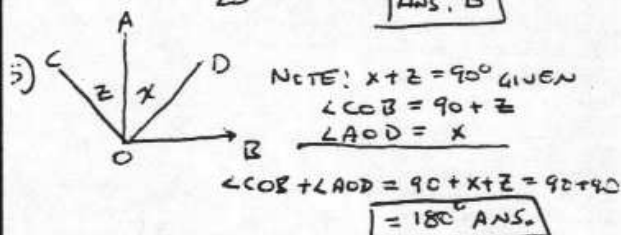 ANS. B
A
C
D
Z
X
O
B
NOTE! X+Z = 90° GIVEN
∠COB = 90 + Z
∠AOD = X
∠COB + ∠AOD = 90 + X + Z = 90+90
= 180° ANS.